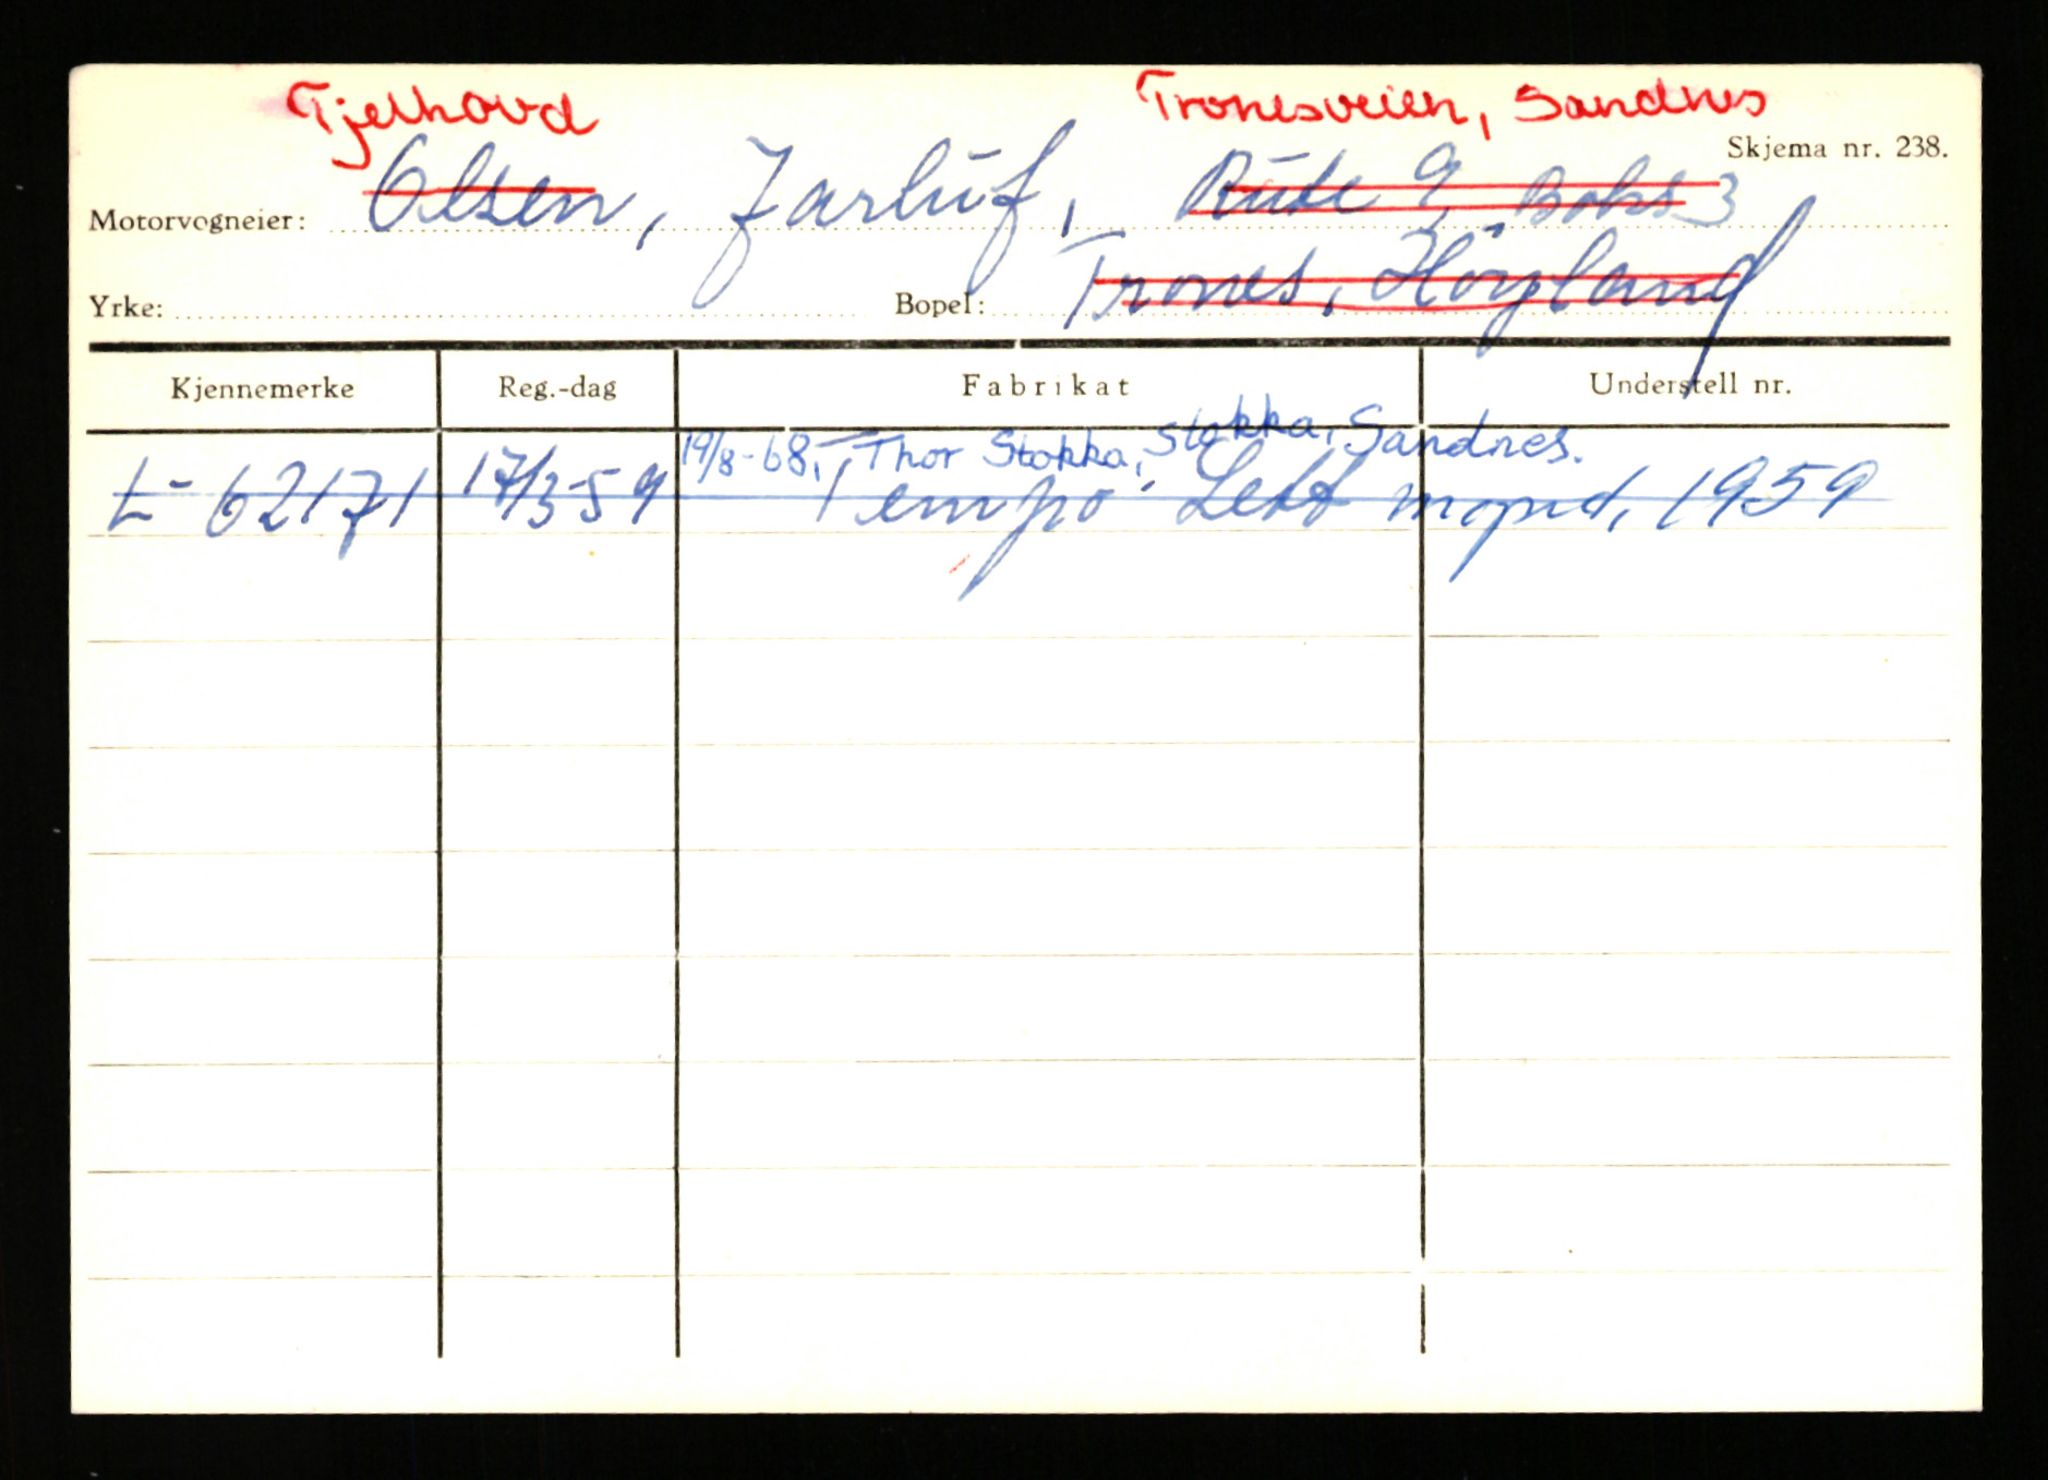 Tjelhovd Tronesveien, Sandnes
Skjema nr. 238.
Motorvogneier: Olsen, Jarluf, Rute 9, Boks 3
Yrke: Bopel: Trones, Höyland
Kjennemerke Reg.-dag Fabrikat Understell nr.
19/8-68, Thor Stokka, Stokka, Sandnes.
L-62171 17/3-59 Tempo Lett moped, 1959